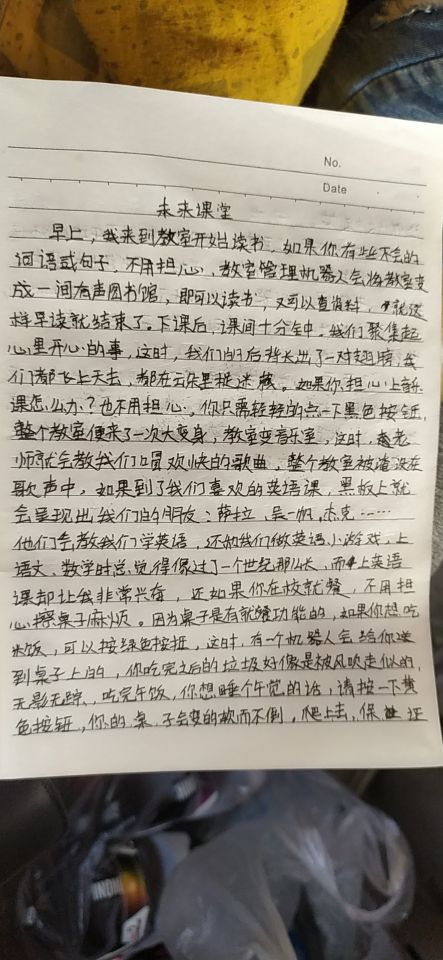 No.
Date
未来课堂
早上，我来到教室开始读书，如果你有些不会的
词语或句子，不用担心，教室管理机器人会将教室变
成一间有声图书馆，即可以读书，又可以查资料，就这
样早读就结束了。下课后，课间十分钟中，我们聚集起
心里开心的事，这时，我们的后背长出了一对翅膀，我
们都飞上天去，都在云朵里捉迷藏。如果你担心上音乐
课怎么办？也不用担心，你只需轻轻的点一下黑色按钮，
整个教室便来了一次大变身，教室变音乐室，这时，老
师就会教我们唱欢快的歌曲，整个教室被淹没在
歌声中，如果到了我们喜欢的英语课，黑板上就
会呈现出我们的朋友：萨拉，吴一帆，杰克……
他们会教我们学英语，还和我们做英语小游戏，上
语文、数学时总觉得像过了一个世纪那么长，而上英语
课却让我非常兴奋，还如果你在校就餐，不用担
心擦桌子麻烦。因为桌子是有就餐功能的，如果你想吃
米饭，可以按绿色按扭，这时，有一个机器人会给你送
到桌子上的，你吃完之后的垃圾好像是被风吹走似的，
无影无踪，吃完午饭，你想睡个午觉的话，请按一下黄
色按钮，你的桌子会变的软而不倒，爬上去，保证